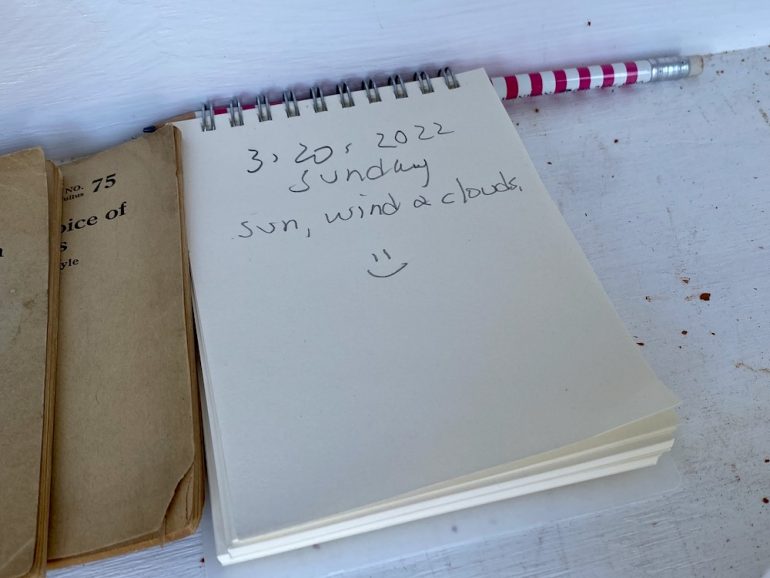 3.20.2022
Sunday
sun, wind & clouds.
NO. 75
oice of
s
yle